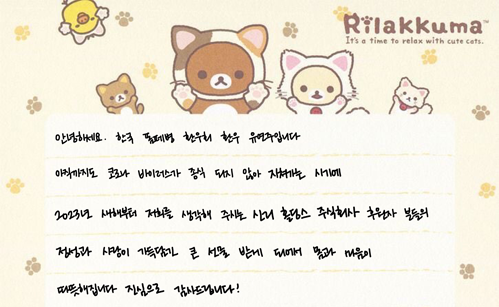 Rilakkuma™
It's a time to relax with cute cats.
안녕하세요. 한국 폼페병 환우회 환우 유연주입니다
아직까지도 코로나 바이러스가 종식 되지 않아 지쳐가는 시기에
2023년 새해부터 저희를 생각해 주시는 산니 홀딩스 주식회사 후원자 분들의
정성과 사랑이 가득담긴 큰 선물 받게 되어서 몸과 마음이
따뜻해집니다 진심으로 감사드립니다!